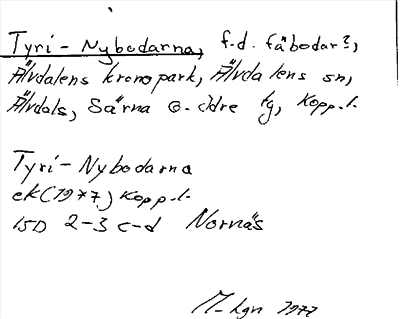 Tyri-Nybodarna, f.d. fäbodar?,
Älvdalens kronopark, Älvdalens sn,
Älvdals, Särna o. Idre tg, Kopp.l.
Tyri-Nybodarna
ek(1977) Kopp.l.
15D 2-3 c-d Nornäs
M-hgn 1977